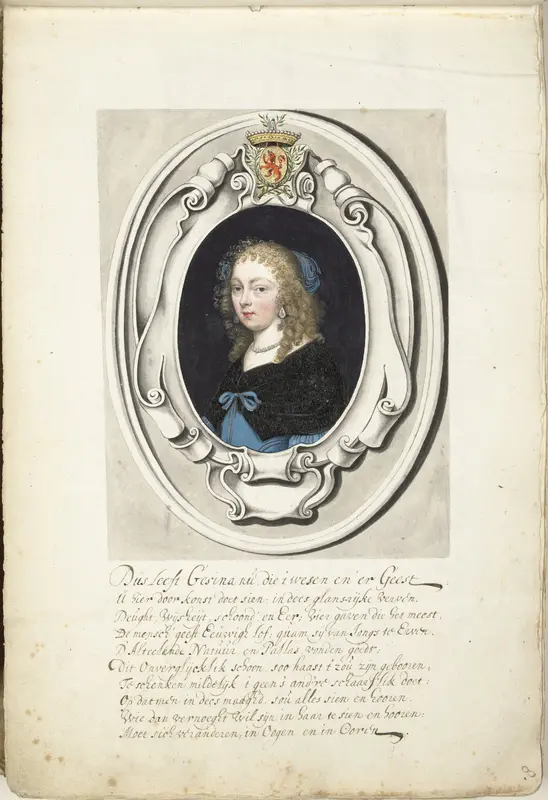 Dus leeft Gesina nu die 't wesen en' er Geest
U hier door konst doet sien, in dees glansrijke verwen.
Deught, Wijsheijt, schoond' en Eer; vier gaven die het meest
De mensch geeft Eeuwigh lof, quam sy van Jongs te Erven.
D'Alteelende Natuur en Pallas vonden goedt;
Dit Onvergelycklik schoon soo haast 't zou zijn gebooren,
Te schenken mildelijk 't geen s' and're schaarslik doet:
Op dat men in dees maaghd, sou alles sien en hooren.
Wie dan vernoeght wil sijn in haar te sien en hooren:
Moet sich veranderen, in Oogen en in Ooren
8